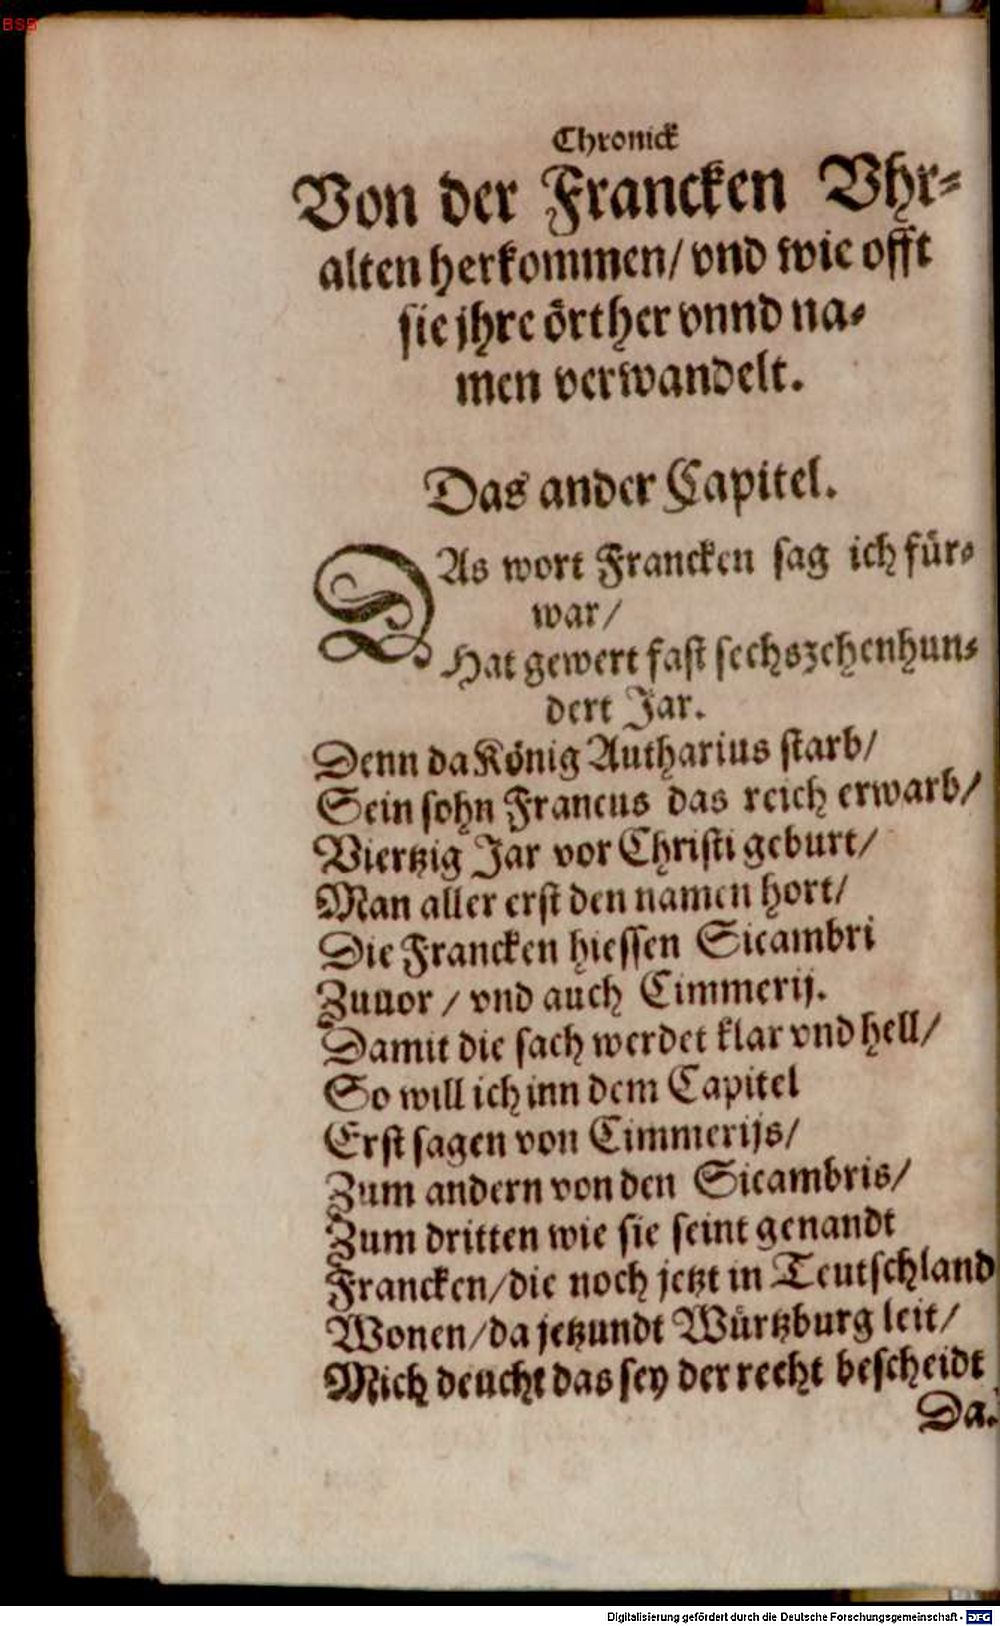 BSB
Chronick
Von der Francken Vhr-
alten herkommen/ vnd wie offt
sie jhre örther vnnd na-
men verwandelt.
Das ander Capitel.
DAs wort Francken sag ich für-
war/
Hat gewert fast sechszehenhun-
dert Jar.
Denn da König Autharius starb/
Sein sohn Francus das reich erwarb/
Viertzig Jar vor Christi geburt/
Man aller erst den namen hort/
Die Francken hiessen Sicambri
Zuuor / vnd auch Cimmerij.
Damit die sach werdet klar vnd hell/
So will ich inn dem Capitel
Erst sagen von Cimmerijs/
Zum andern von den Sicambris/
Zum dritten wie sie seint genandt
Francken/die noch jetzt in Teutschland
Wonen/da jetzundt Würtzburg leit/
Mich deucht das sey der recht bescheidt
Da-
Digitalisierung gefördert durch die Deutsche Forschungsgemeinschaft - DFG